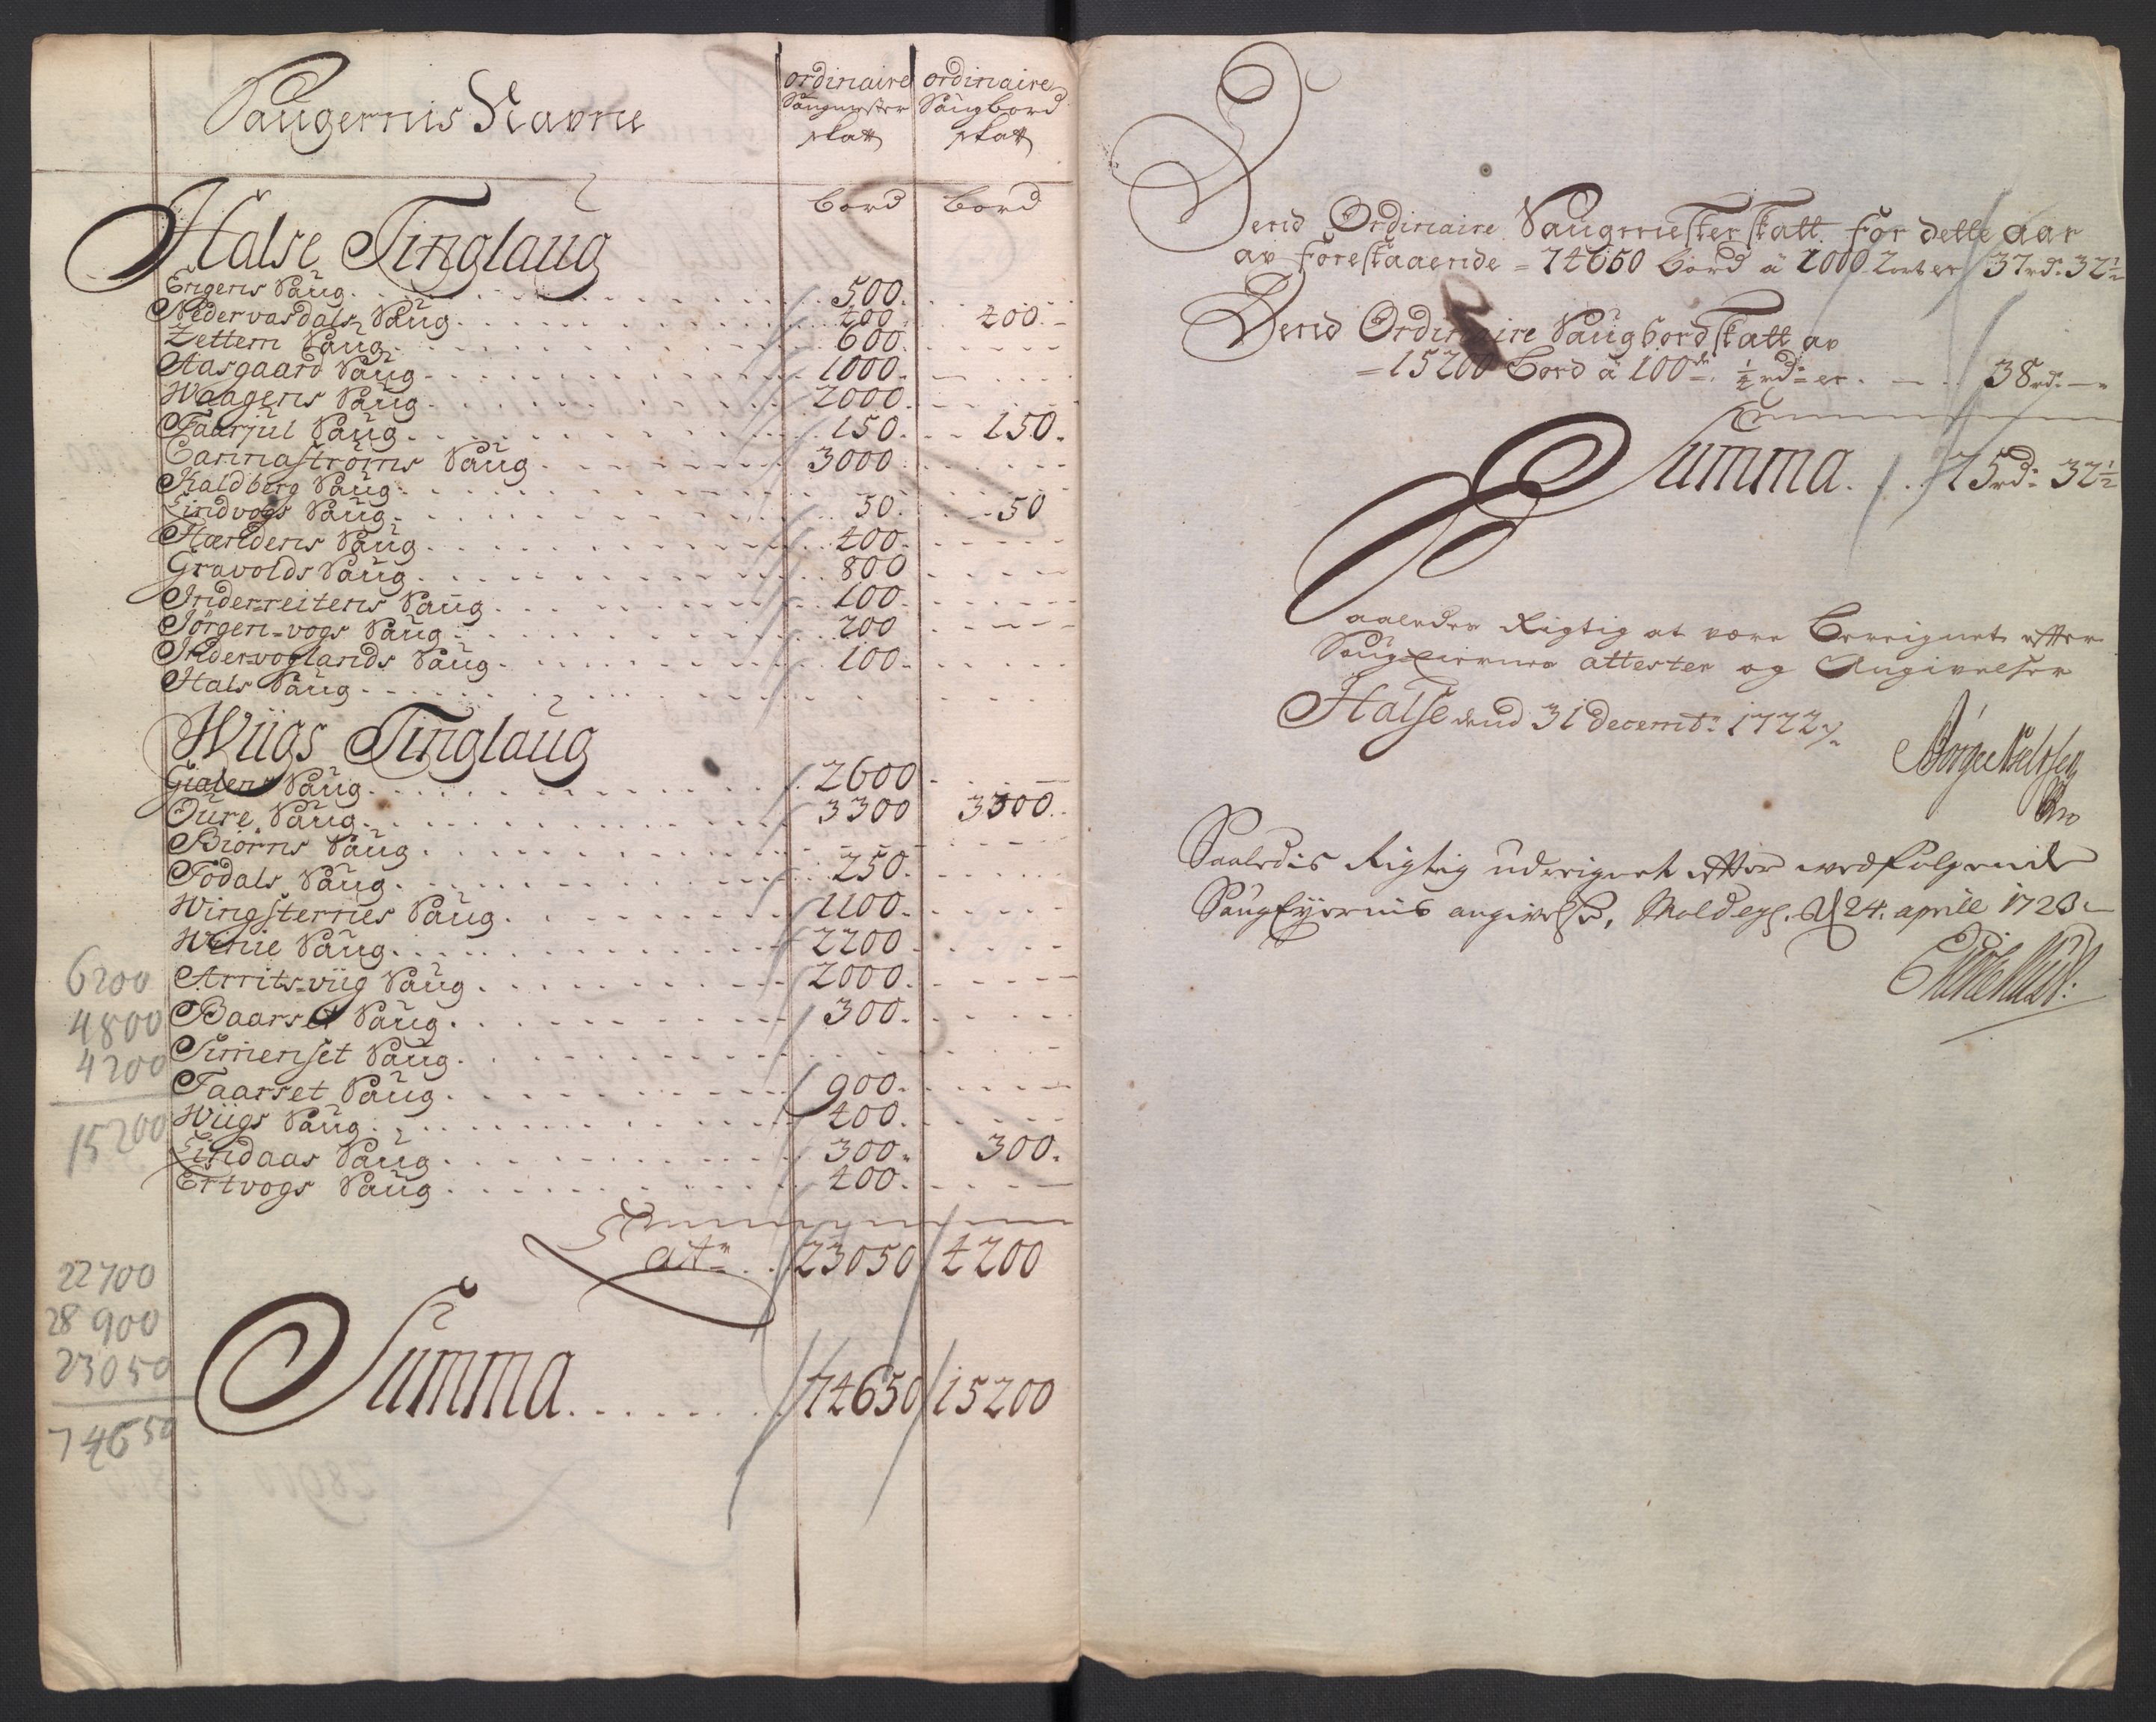 Saugernis Navne
ordinaire Saugmester skatt
ordinaire Saugbord skatt
bord bord
Halse Tinglaug
Engens Saug 500.
Nedervasdals Saug 400 400.
Zettem Saug 600.
Aasgaard Saug 1000.
Waagens Saug 2000.
Faarjul Saug 150. 150.
Cannaströms Saug 3000
Kaldberg Saug
Lindvogs Saug 50. 50
Hærldens Saug 400.
Gravolds Saug 800
Inderreitens Saug 100.
Jörgen-vogs Saug 200
Indervoglands Saug 100.
Hals Saug
Wiigs Tinglaug
Gialens Saug 2600
Oure Saug 3300 3300.
Biörns Saug
Todals Saug 250.
Wingsternes Saug 1100.
Winie Saug 2200
Arrits-viig Saug 2000.
Baarset Saug 300.
Simenset Saug
Taarset Saug 900.
Wiigs Saug 400.
Lindaas Saug 300. 300.
Ertvogs Saug 400.
6200
4800
4200
15200
lat 23050 4200
22700
28900
23050
74650
Summa 74650 15200
Dend Ordinaire Saugmester skatt for dette aar
av forestaaende = 74650 bord á 1000 2 ort er 37 rd: 32½
Dend Ordinaire Saugbord skatt av
= 15200 Bord á 100de ¼ rd: er 38 rd:
Summa. 75 rd: 32½
Saaledes Rigtig at være Bereignet efter
Saug Eiernes attester og Angivelser
Halse dend 31 decembr: 1722
Saaledis Rigtig udreignet efter medfølgende
Saug Eyernis angivelse, Molde d 24. aprill 1723